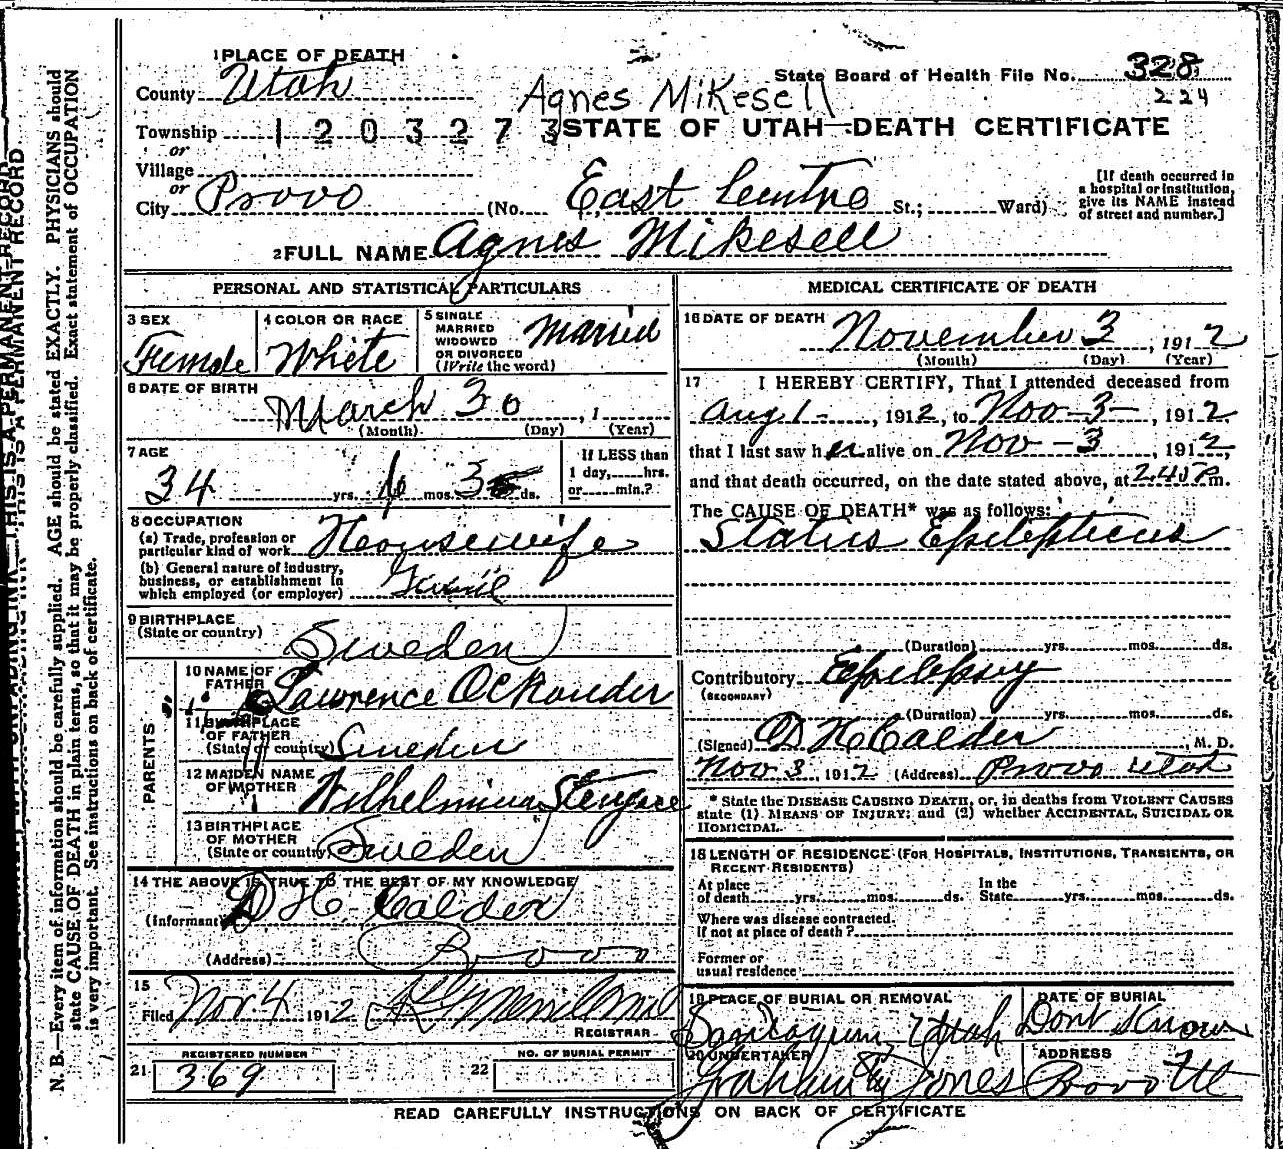 1 PLACE OF DEATH
State Board of Health File No. 328
224
County Utah
Agnes Mikesell
Township 1203273
STATE OF UTAH—DEATH CERTIFICATE
or
Village
or
City Provo (No. East Centre St.; Ward)
[If death occurred in a hospital or institution, give its NAME instead of street and number.]
2 FULL NAME Agnes Mikesell
PERSONAL AND STATISTICAL PARTICULARS
3 SEX Female
4 COLOR OR RACE White
5 SINGLE MARRIED WIDOWED OR DIVORCED (Write the word) Married
6 DATE OF BIRTH
March 30, 1
(Month) (Day) (Year)
7 AGE
34 yrs. mos. 3 ds.
If LESS than 1 day, hrs. or min.?
8 OCCUPATION
(a) Trade, profession or particular kind of work Housewife
(b) General nature of industry, business, or establishment in which employed (or employer)
9 BIRTHPLACE
(State or country) Sweden
PARENTS
10 NAME OF FATHER Lawrence Ockander
11 BIRTHPLACE OF FATHER (State or country) Sweden
12 MAIDEN NAME OF MOTHER Wilhelmina
13 BIRTHPLACE OF MOTHER (State or country) Sweden
14 THE ABOVE IS TRUE TO THE BEST OF MY KNOWLEDGE
(Informant) D H Calder
(Address) Provo
15
Filed Nov. 4 1912
REGISTRAR
REGISTERED NUMBER
21 369
NO. OF BURIAL PERMIT
22
MEDICAL CERTIFICATE OF DEATH
16 DATE OF DEATH
November 3, 1912
(Month) (Day) (Year)
17 I HEREBY CERTIFY, That I attended deceased from
Aug 1-, 1912, to Nov-3-, 1912,
that I last saw her alive on Nov-3, 1912,
and that death occurred, on the date stated above, at 2.45 P m.
The CAUSE OF DEATH* was as follows:
Status Epilepticus
(Duration) yrs. mos. ds.
Contributory Epilepsy
(SECONDARY)
(Duration) yrs. mos. ds.
(Signed) D H Calder, M. D.
Nov 3, 1912 (Address) Provo Utah
* State the DISEASE CAUSING DEATH, or, in deaths from VIOLENT CAUSES
state (1) MEANS OF INJURY; and (2) whether ACCIDENTAL, SUICIDAL OR
HOMICIDAL.
18 LENGTH OF RESIDENCE (FOR HOSPITALS, INSTITUTIONS, TRANSIENTS, OR
RECENT RESIDENTS)
At place of death yrs. mos. ds. In the State yrs. mos. ds.
Where was disease contracted.
If not at place of death?
Former or
usual residence
19 PLACE OF BURIAL OR REMOVAL
Utah
DATE OF BURIAL
Dont Know
20 UNDERTAKER
Jones
ADDRESS
Provo Ut
READ CAREFULLY INSTRUCTIONS ON BACK OF CERTIFICATE
THIS IS A PERMANENT RECORD
N. B.—Every item of information should be carefully supplied. AGE should be stated EXACTLY. PHYSICIANS should
state CAUSE OF DEATH in plain terms, so that it may be properly classified. Exact statement of OCCUPATION
is very important. See instructions on back of certificate.